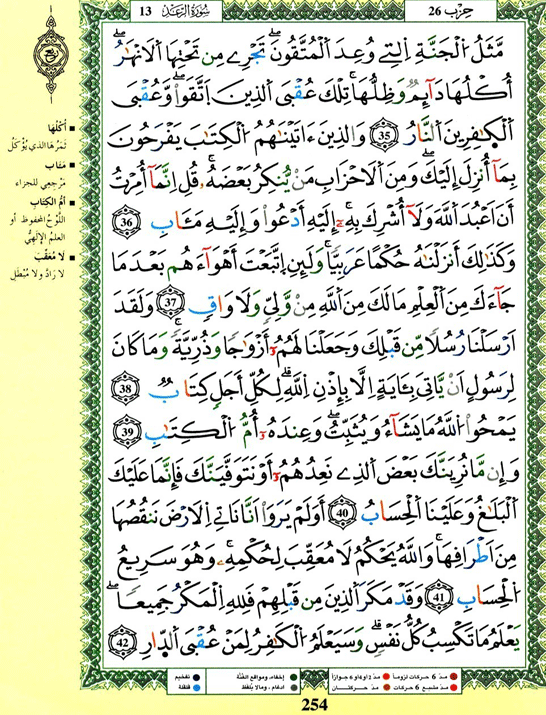 حِزْب 26
سُورَةُ الرَّعْد 13
مَّثَلُ الْجَنَّةِ اِلتِے وُعِدَ اَلْمُتَّقُونَۖ تَجْرِے مِن تَحْتِهَا اَلَانْهَٰرُۖ
أُكْلُهَا دَآئِمٞ وَظِلُّهَاۚ تِلْكَ عُقْبَى اَلذِينَ اَتَّقَواْۖ وَّعُقْبَى
اَلْكٰ۪فِرِينَ اَلنَّارُۖ 35 وَالذِينَ ءَاتَيْنَٰهُمُ اُلْكِتَٰبَ يَفْرَحُونَ
بِمَآ أُنزِلَ إِلَيْكَۖ وَمِنَ اَلَاحْزَابِ مَنْ يُّنكِرُ بَعْضَهُۥۚ قُلِ اِنَّمَآ أُمِرْتُ
أَنَ اَعْبُدَ اَللَّهَ وَلَآ أُشْرِكَ بِهِۦٓۚ إِلَيْهِ أَدْعُواْ وَإِلَيْهِ مَـَٔابِۖ 36
وَكَذَٰلِكَ أَنزَلْنَٰهُ حُكْماً عَرَبِيّاٗۚ وَلَئِنِ اِتَّبَعْتَ أَهْوَآءَهُم بَعْدَ مَا
جَآءَكَ مِنَ اَلْعِلْمِ مَا لَكَ مِنَ اَللَّهِ مِنْ وَّلِيّٖ وَلَا وَاقٖۖ 37 وَلَقَدَ
اَرْسَلْنَا رُسُلاٗ مِّن قَبْلِكَ وَجَعَلْنَا لَهُمُۥٓ أَزْوَٰجاٗ وَذُرِّيَّةٗۚ وَمَا كَانَ
لِرَسُولٍ اَنْ يَّاتِيَ بِـَٔايَةٍ اِلَّا بِإِذْنِ اِللَّهِۖ لِكُلِّ أَجَلٖ كِتَابٞۖ 38
يَمْحُواْ اُللَّهُ مَا يَشَآءُ وَيُثَبِّتُۖ وَعِندَهُۥٓ أُمُّ اُلْكِتَٰبِۖ 39
وَإِن مَّا نُرِيَنَّكَ بَعْضَ اَلذِے نَعِدُهُمُۥٓ أَوْ نَتَوَفَّيَنَّكَ فَإِنَّمَا عَلَيْكَ
اَلْبَلَٰغُ وَعَلَيْنَا اَلْحِسَابُۖ 40 أَوَلَمْ يَرَوَاْ اَنَّا نَاتِے اِلَارْضَ نَنقُصُهَا
مِنَ اَطْرَافِهَاۚ وَاللَّهُ يَحْكُمُ لَا مُعَقِّبَ لِحُكْمِهِۦۚ وَهُوَ سَرِيعُ
اُلْحِسَابِۖ 41 وَقَدْ مَكَرَ اَلذِينَ مِن قَبْلِهِمْ فَلِلهِ اِلْمَكْرُ جَمِيعاٗۖ
يَعْلَمُ مَا تَكْسِبُ كُلُّ نَفْسٖۗ وَسَيَعْلَمُ اُلْكَٰفِرُ لِمَنْ عُقْبَى اَلدّ۪ارِۖ 42
■ أُكْلُهَا
ثَمَرُهَا الذي يُؤْكَلُ
■ مَـَٔاب
مَرْجِعِي للجزاء
■ أمُّ الكِتَابِ
اللَّوْحُ المحفوظ أو
العلمُ الإلَهِيُّ
■ لَا مُعَقِّبَ
لا رَادَّ ولا مُبْطِلَ
● مدّ 6 حركات لزوماً ● مدّ 2 أو 4 أو 6 جوازاً ● إخفاء، ومواقع الغُنَّة ● تفخيم
● مدّ مشبع 6 حركات ● مدّ حركتان ● إدغام، وما لا يُلفَظ ● قلقلة
254